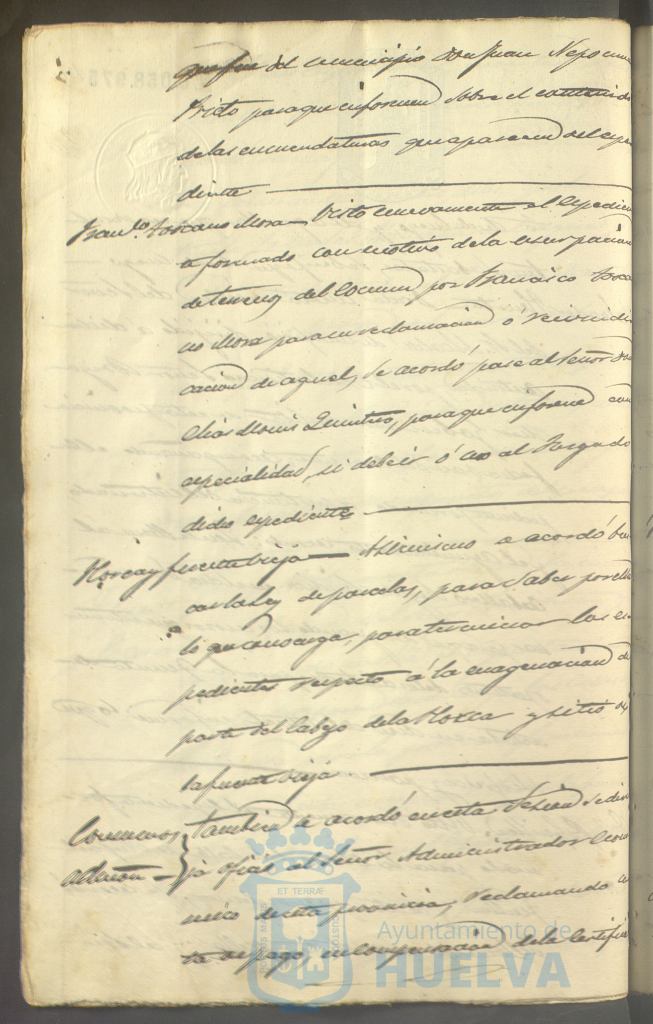 del municipio Don Juan Nepomu
Prieto para que informen sobre el contenido
de las enmendaturas que aparecen del expe
diente
Franco. Toscano Mora - Visto nuevamente el expedien
te formado con motivo de la usurpacion
de terreno del Comun por Francisco Tosca
no Mora para su reclamacion ó reivindi
cacion de aquel, se acordó pase al Señor Don
Elias Quintero, para que informe con
especialidad, si debe ir ó no al Juzgado
dicho expediente
Horca y fuente vieja - Asi mismo se acordó bus
car la Ley de parcelas, para saber por ella
lo que convenga, para terminar los es
pedientes respecto á la enagenacion de
parte del Cabezo de la Horca y sitio de
la fuente vieja.
Consumos Tambien se acordó en esta Sesion se diri
admon - ja oficio al Señor Administrador Econó
mico de esta provincia, reclamando
ta de pago, en compensacion de la Certifi
ET TERRÆ
Ayuntamiento de
HUELVA